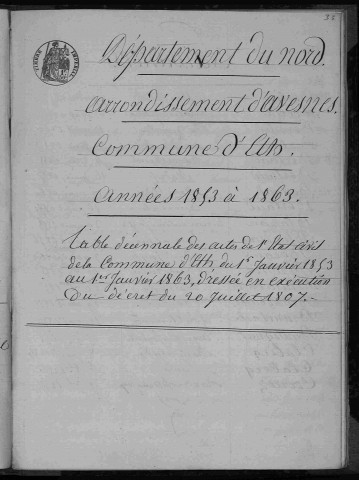 Département du nord.
arrondissement d'avesnes.
Commune d'Eth.
années 1853 à 1863.
table décennale des actes de l'état civil
de la Commune d'Eth, du 1er Janvier 1853
au 1er Janvier 1863, dressée en exécution
Du décret du 20 Juillet 1807.